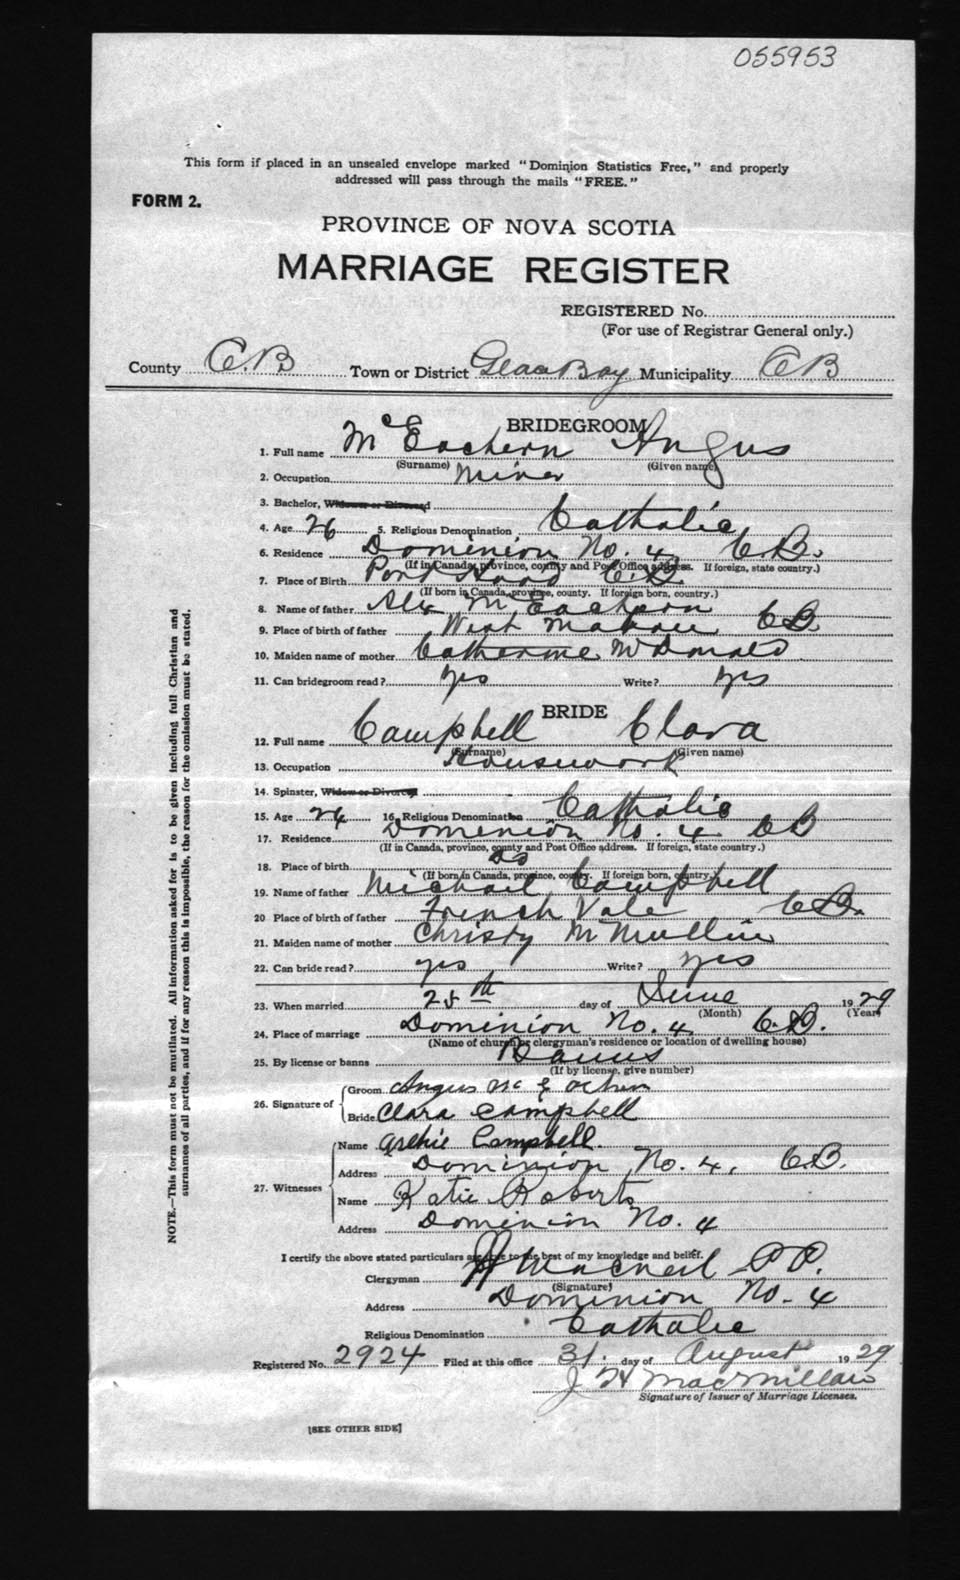 055953
This form if placed in an unsealed envelope marked "Dominion Statistics Free," and properly
addressed will pass through the mails "FREE."
FORM 2.
PROVINCE OF NOVA SCOTIA
MARRIAGE REGISTER
REGISTERED No.
(For use of Registrar General only.)
County C.B Town or District Glace Bay Municipality CB
BRIDEGROOM
1. Full name McEachern Angus
(Surname) (Given name)
2. Occupation Miner
3. Bachelor, Widower or Divorced
4. Age 26 5. Religious Denomination Catholic
6. Residence Dominion No. 4 C.B.
(If in Canada, province, county and Post Office address. If foreign, state country.)
7. Place of Birth Port Hood C.B.
(If born in Canada, province, county. If foreign born, country.)
8. Name of father Alex McEachern
9. Place of birth of father West Mabou C.B.
10. Maiden name of mother Catherine McDonald
11. Can bridegroom read? yes Write? yes
BRIDE
12. Full name Campbell Clara
(Surname) (Given name)
13. Occupation Housework
14. Spinster, Widow or Divorced
15. Age 24 16. Religious Denomination Catholic
17. Residence Dominion No. 4 CB
(If in Canada, province, county and Post Office address. If foreign, state country.)
18. Place of birth do
(If born in Canada, province, county. If foreign born, country.)
19. Name of father Michael Campbell
20 Place of birth of father French Vale C.B.
21. Maiden name of mother Christy McMullin
22. Can bride read? yes Write? yes
23. When married 25th day of June 1929
(Month) (Year)
24. Place of marriage Dominion No. 4 C.B.
(Name of church or clergyman's residence or location of dwelling house)
25. By license or banns Banns
(If by license, give number)
26. Signature of Groom Angus McEachern
Bride Clara Campbell
27. Witnesses Name Archie Campbell.
Address Dominion No. 4. C.B.
Name Katie Roberts
Address Dominion No. 4
I certify the above stated particulars are true to the best of my knowledge and belief.
Clergyman MacNeil P.P.
(Signature)
Address Dominion No. 4
Religious Denomination Catholic
Registered No. 2924 Filed at this office 31. day of August 1929
J W MacMillan
Signature of Issuer of Marriage Licenses.
[SEE OTHER SIDE]
NOTE.—This form must not be mutilated. All information asked for is to be given including full Christian and
surnames of all parties, and if for any reason this is impossible, the reason for the omission must be stated.